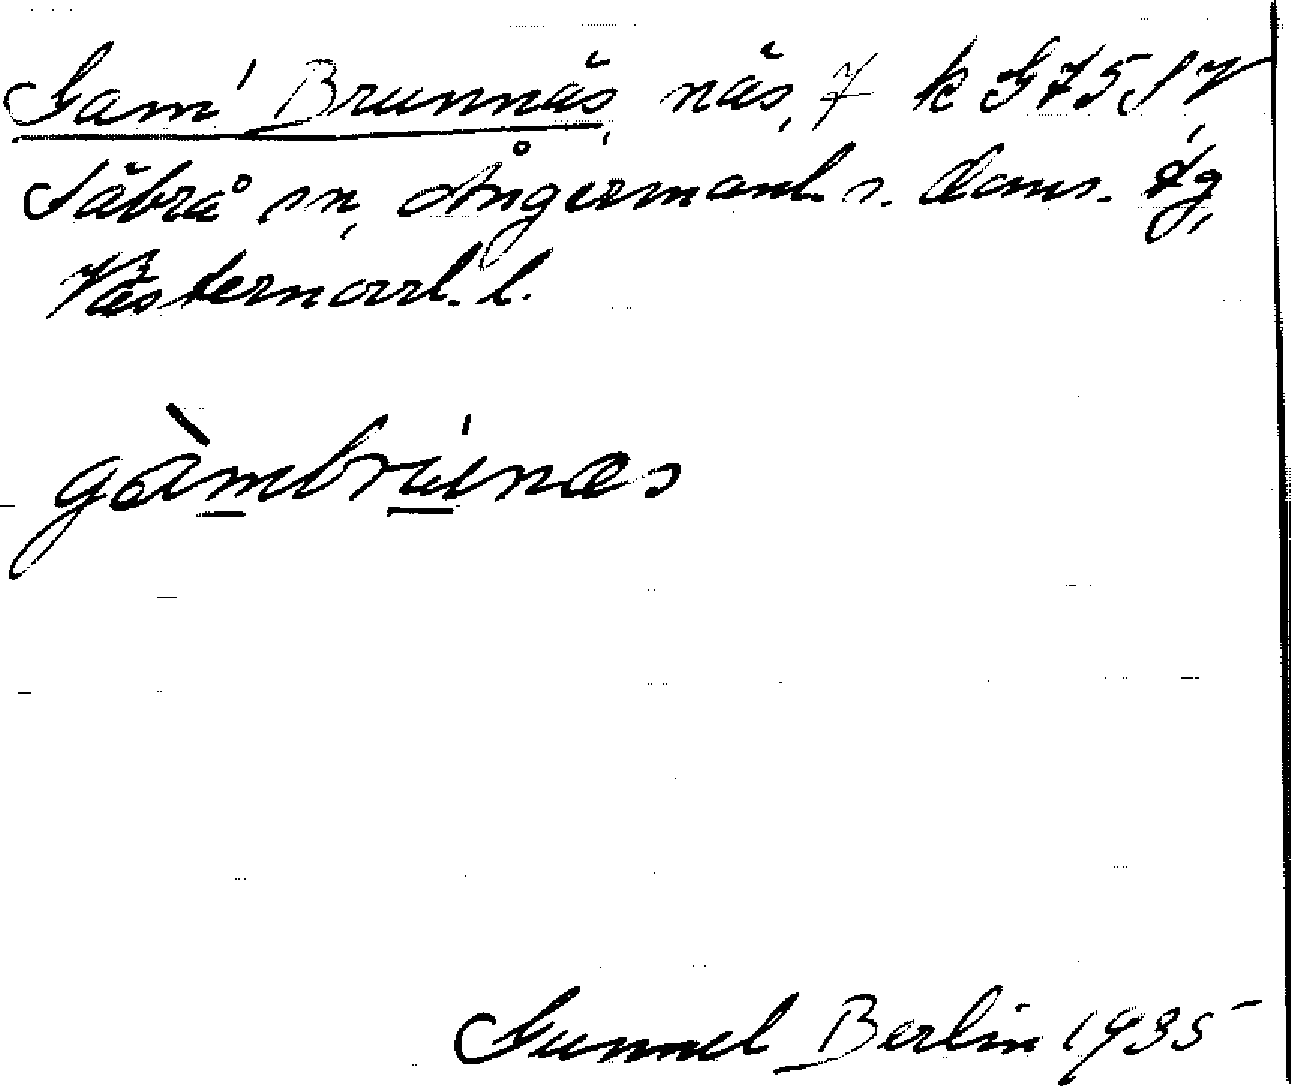 Gam' Brunnäs, näs, 7 k G7587
Säbrå sn, Ångermanl. s. doms. tg,
Västernorrl. l.
gàmbrúnæs
Gunnel Berlin 1935